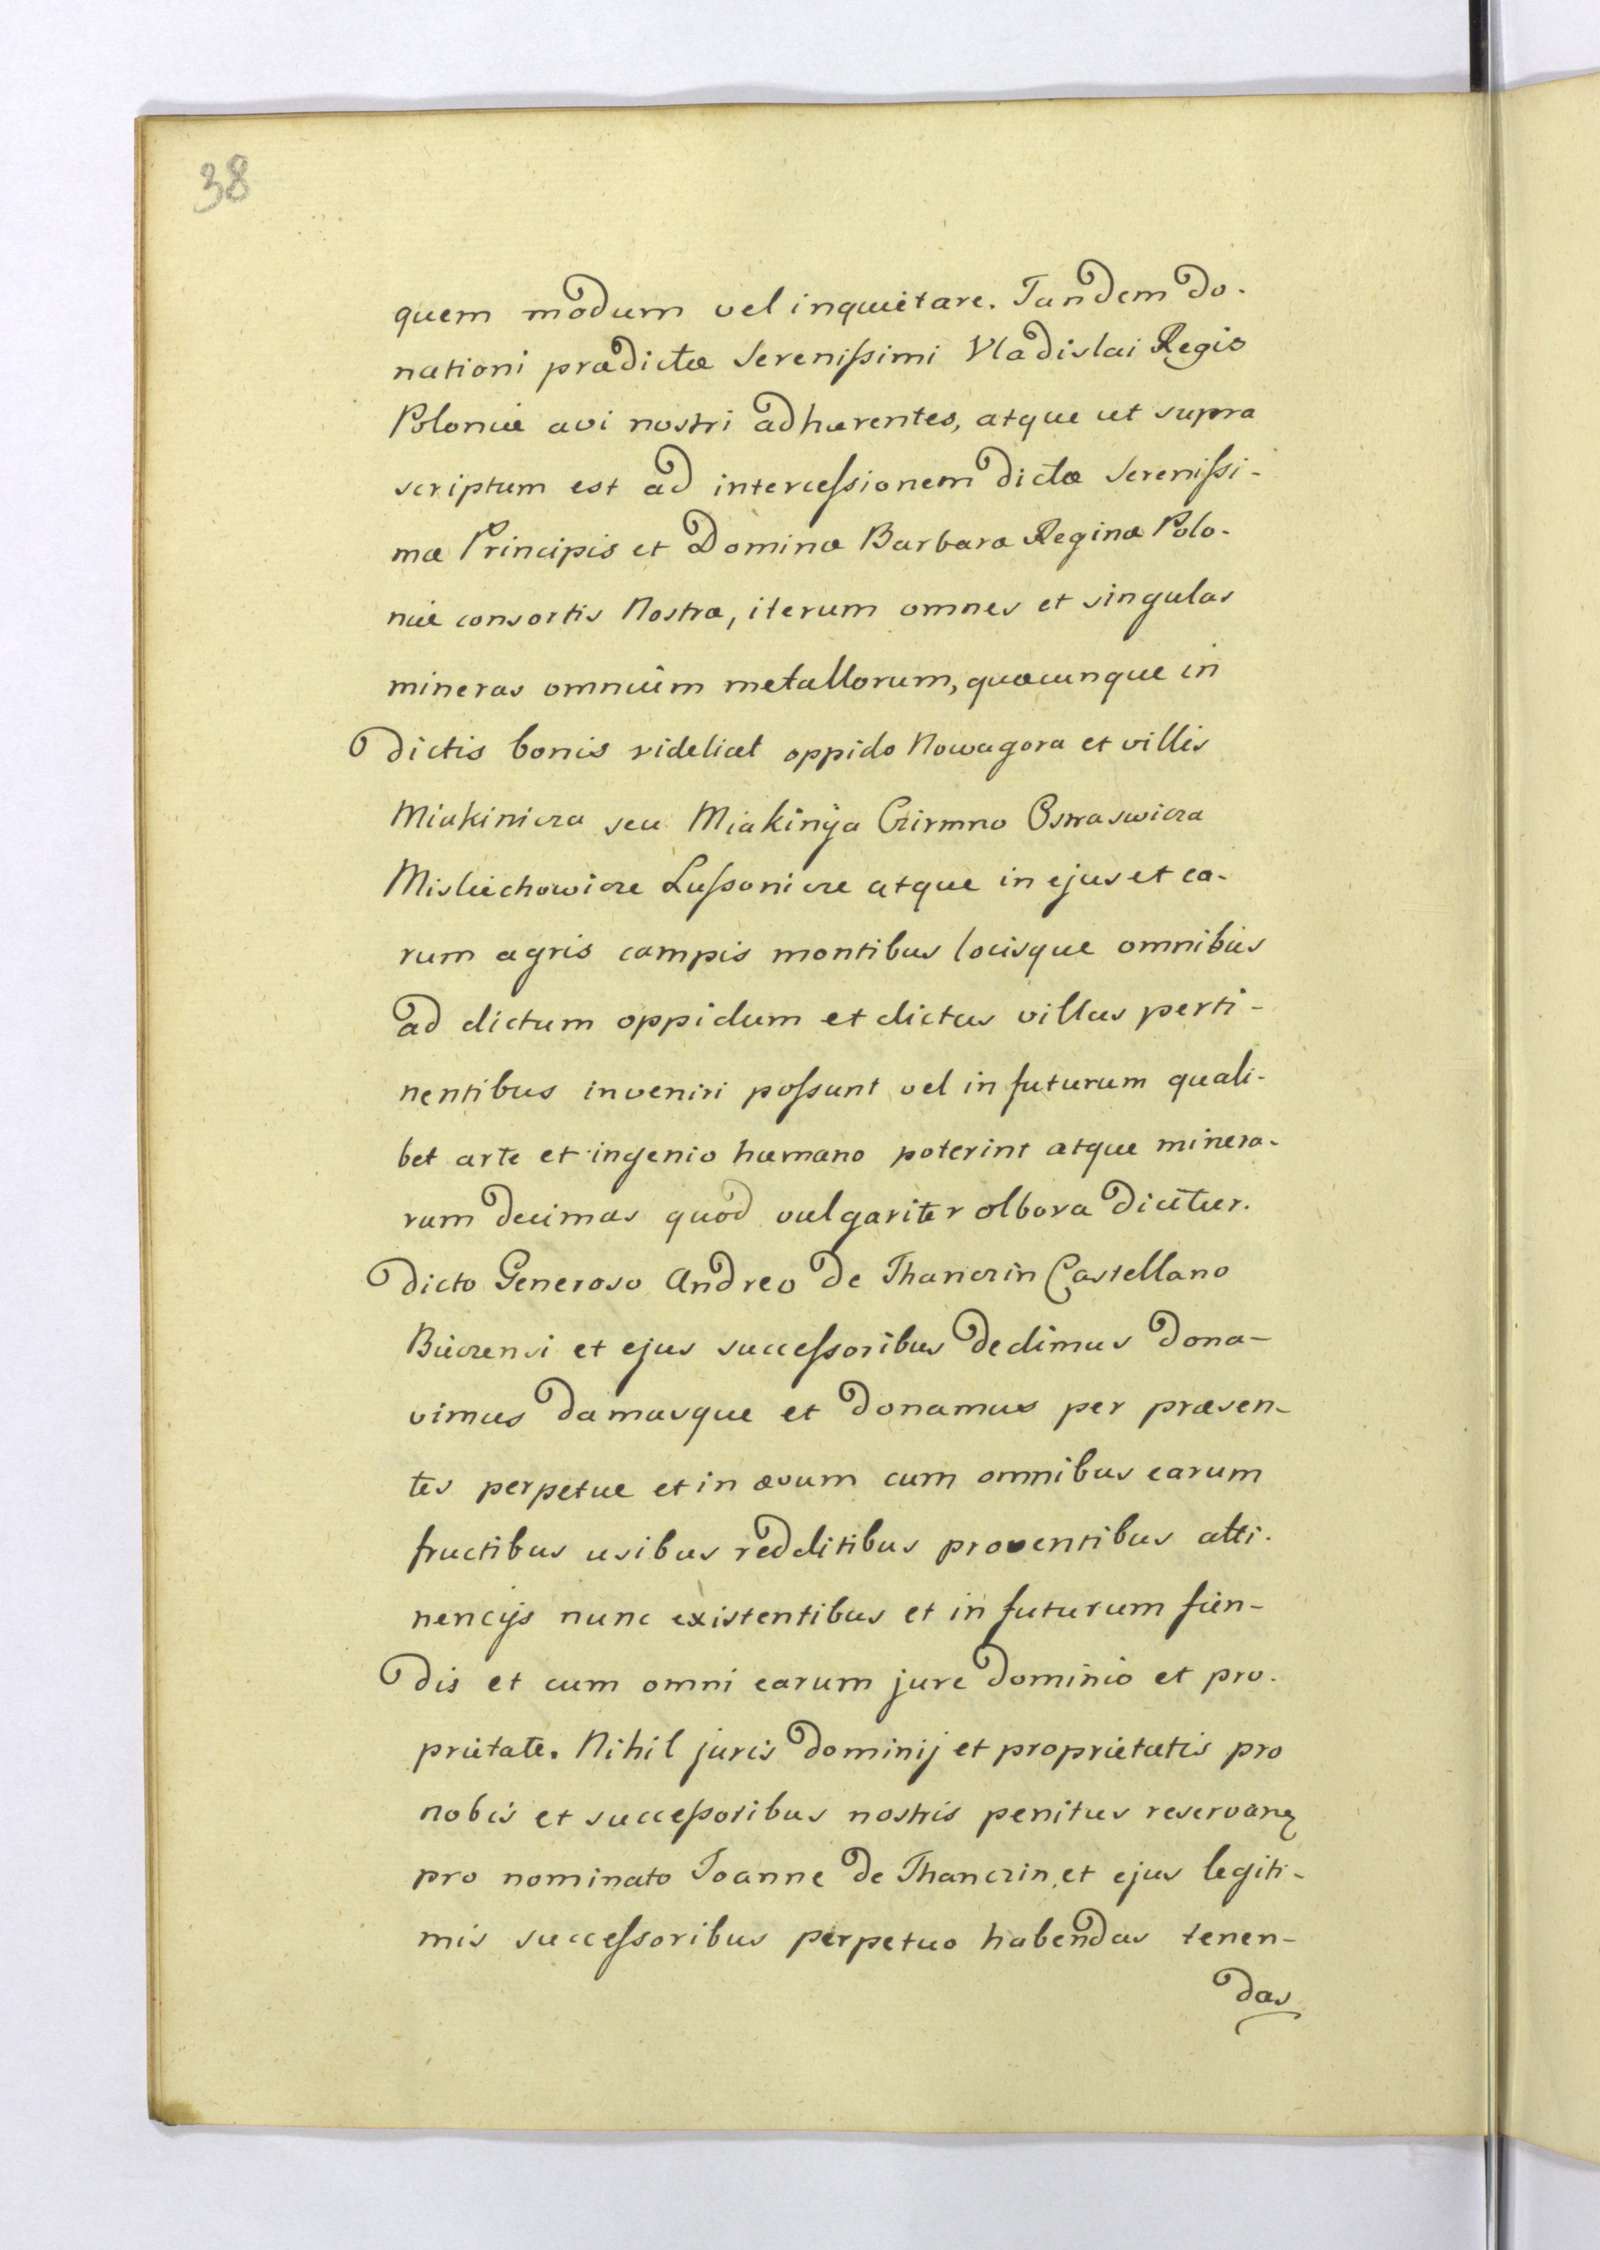 38
quem modum vel inquietare. Tandem do-
nationi prædictæ Serenissimi Vladislai Regis
Poloniæ avi nostri adhærentes, atque ut supra
scriptum est ad intercessionem dictæ Serenissi-
mæ Principis et Dominæ Barbaræ Reginæ Polo-
niæ consortis Nostræ, iterum omnes et singulas
mineras omnium metallorum, quæcunque in
dictis bonis videlicet oppido Nowagora et villis
Miakinicza seu Miakinÿa Czirmno
Misliechowicze Lussonicze atque in ejus et ea-
rum agris campis montibus locisque omnibus
ad dictum oppidum et dictas villas perti-
nentibus inveniri possunt vel in futurum quali-
bet arte et ingenio humano poterint atque minera-
rum decimas quod vulgariter olbora dicitur.
dicto Generoso Andreo de Thanczin Castellano
Bieczensi et ejus successoribus dedimus dona-
vimus damusque et donamus per præsen-
tes perpetue et in ævum cum omnibus earum
fructibus usibus redditibus proventibus atti-
nencijs nunc existentibus et in futurum fien-
dis et cum omni earum jure dominio et pro-
prietate. Nihil juris dominij et proprietatis pro
nobis et successoribus nostris penitus
pro nominato Joanne de Thanczin et ejus legiti-
mis successoribus perpetuo habendas tenen-
das